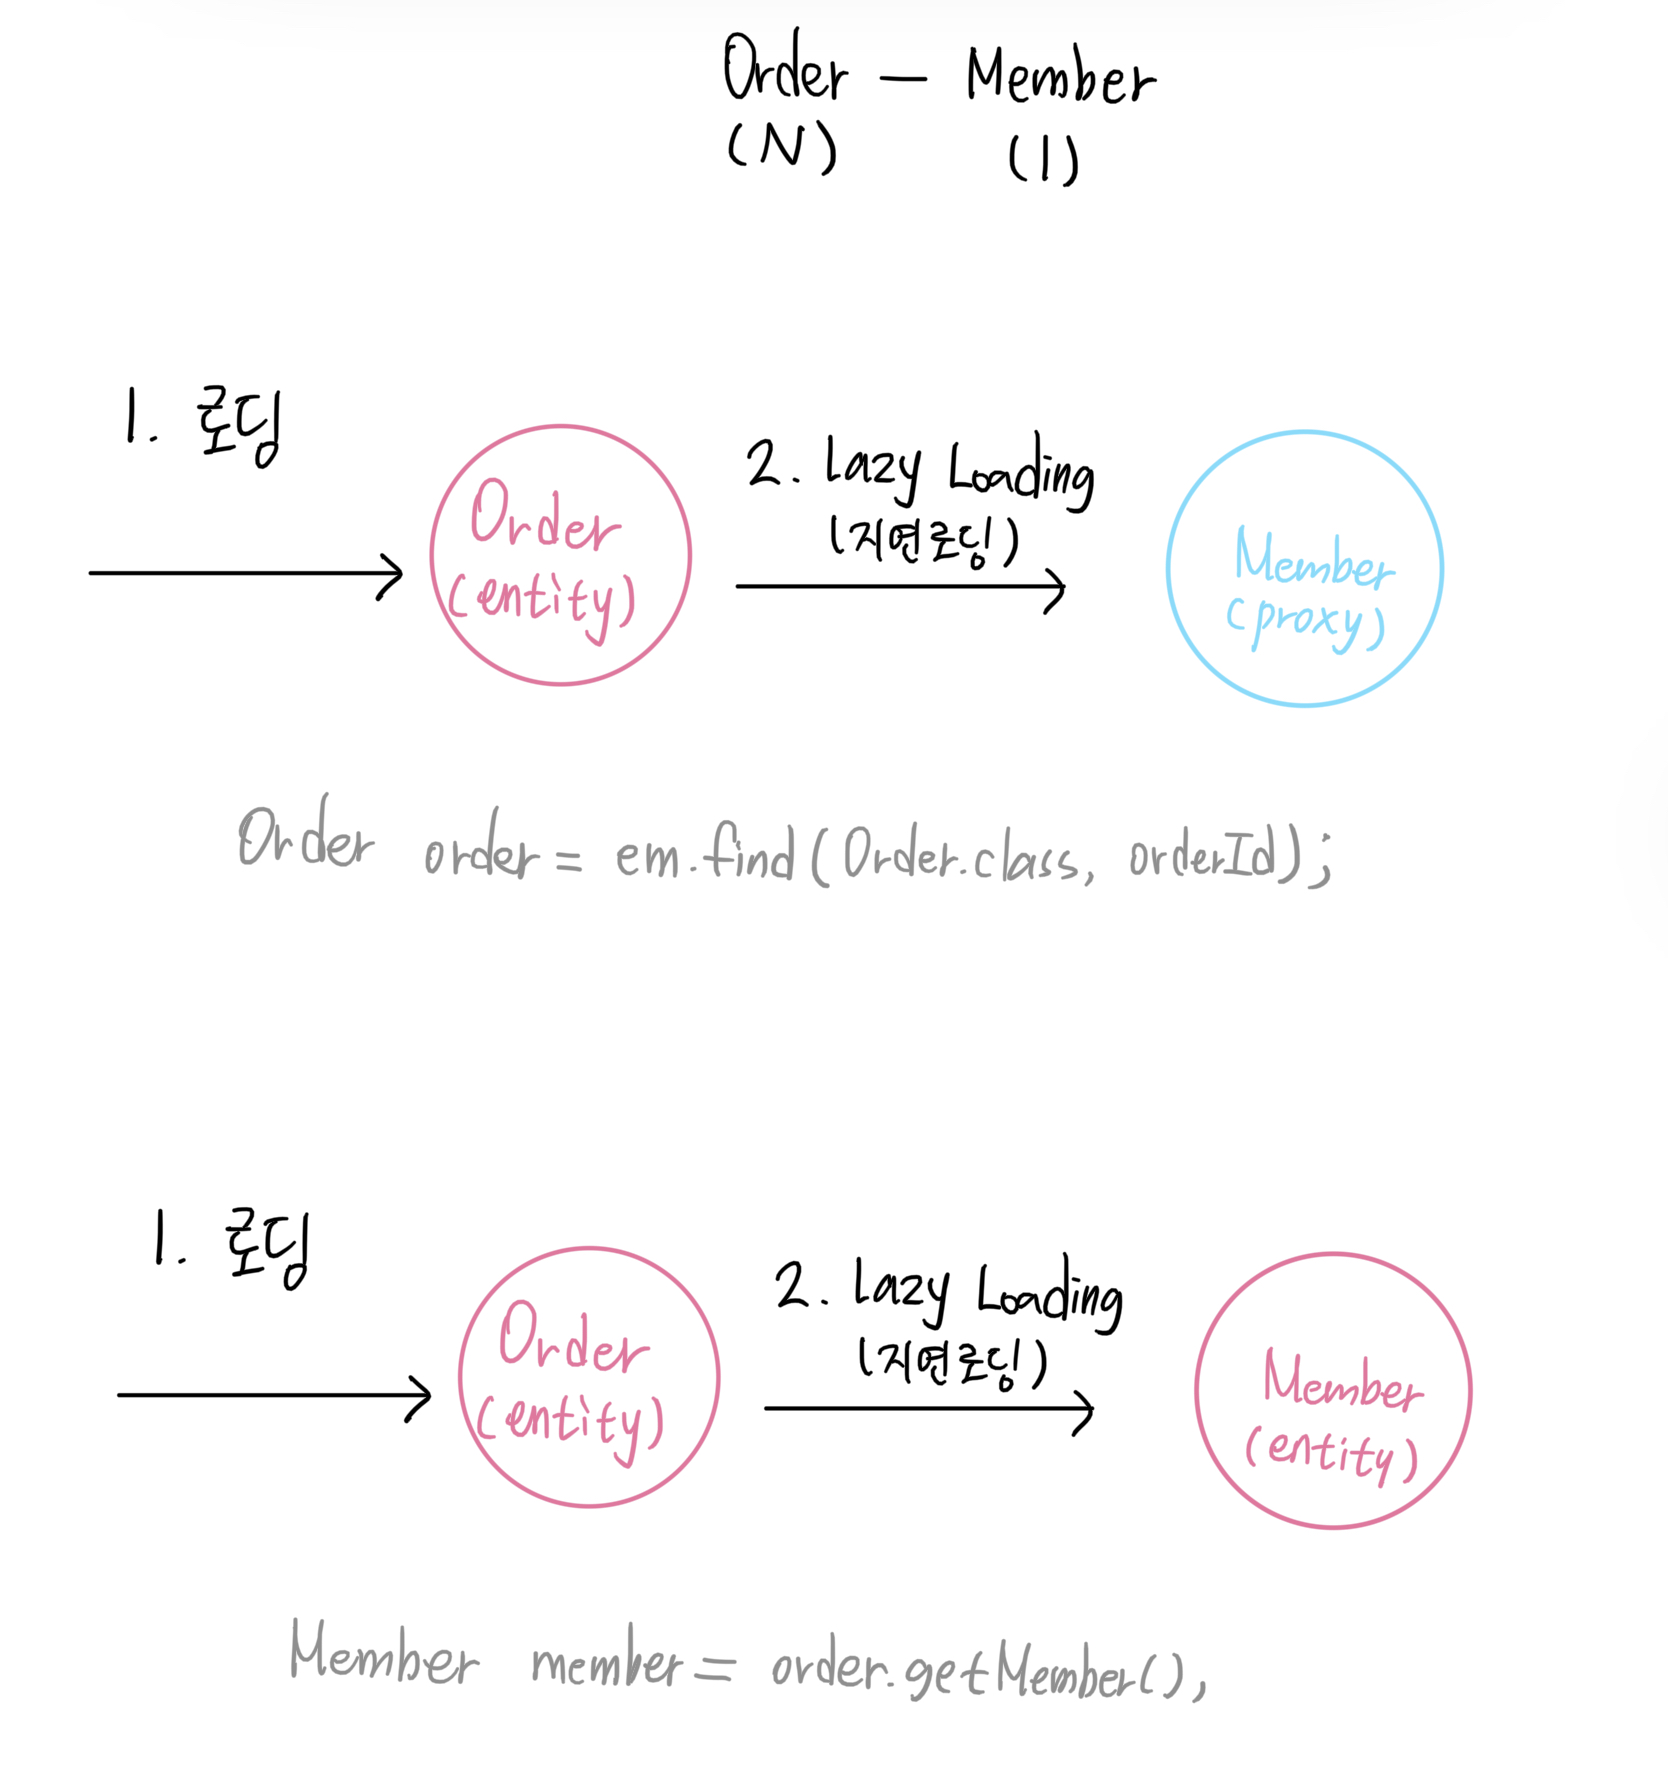 Order — Member
(N) (1)
1. 로딩
Order
(entity)
2. Lazy Loading
(지연로딩)
Member
(proxy)
Order order = em.find(Order.class, orderId);
1. 로딩
Order
(entity)
2. Lazy Loading
(지연로딩)
Member
(entity)
Member member = order.getMember(),